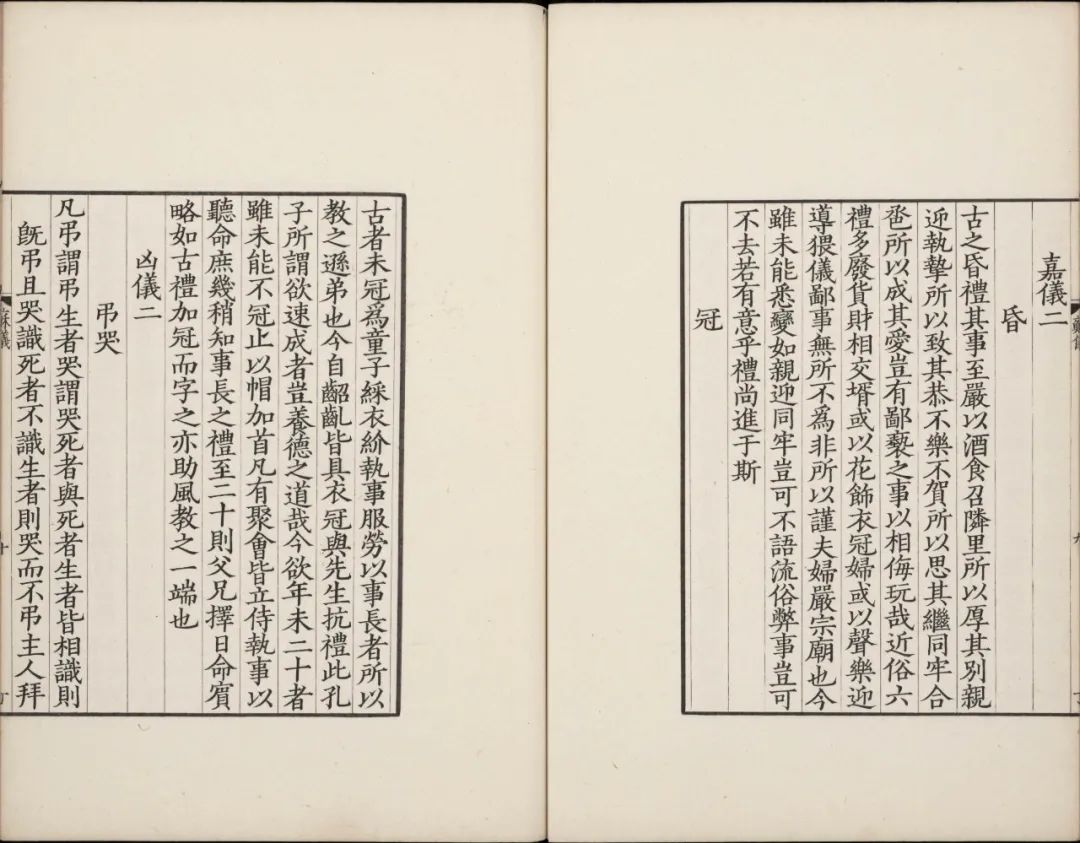 嘉儀二
昏
古之昏禮其事至嚴以酒食召隣里所以厚其別親
迎執摯所以致其恭不樂不賀所以思其繼同牢合
巹所以成其愛豈有鄙褻之事以相侮玩哉近俗六
禮多廢貨財相交壻或以花飾衣冠婦或以聲樂迎
導猥儀鄙事無所不為非所以謹夫婦嚴宗廟也今
雖未能悉變如親迎同牢豈可不語流俗弊事豈可
不去若有意乎禮尚進于斯
冠
古者未冠為童子綵衣紒執事服勞以事長者所以
教之遜弟也今自齠齔皆具衣冠與先生抗禮此孔
子所謂欲速成者豈養德之道哉今欲年未二十者
雖未能不冠止以帽加首凡有聚會皆立侍執事以
聽命庶幾稍知事長之禮至二十則父兄擇日命賓
略如古禮加冠而字之亦助風教之一端也
凶儀二
弔哭
凡弔謂弔生者哭謂哭死者與死者生者皆相識則
旣弔且哭識死者不識生者則哭而不弔主人拜